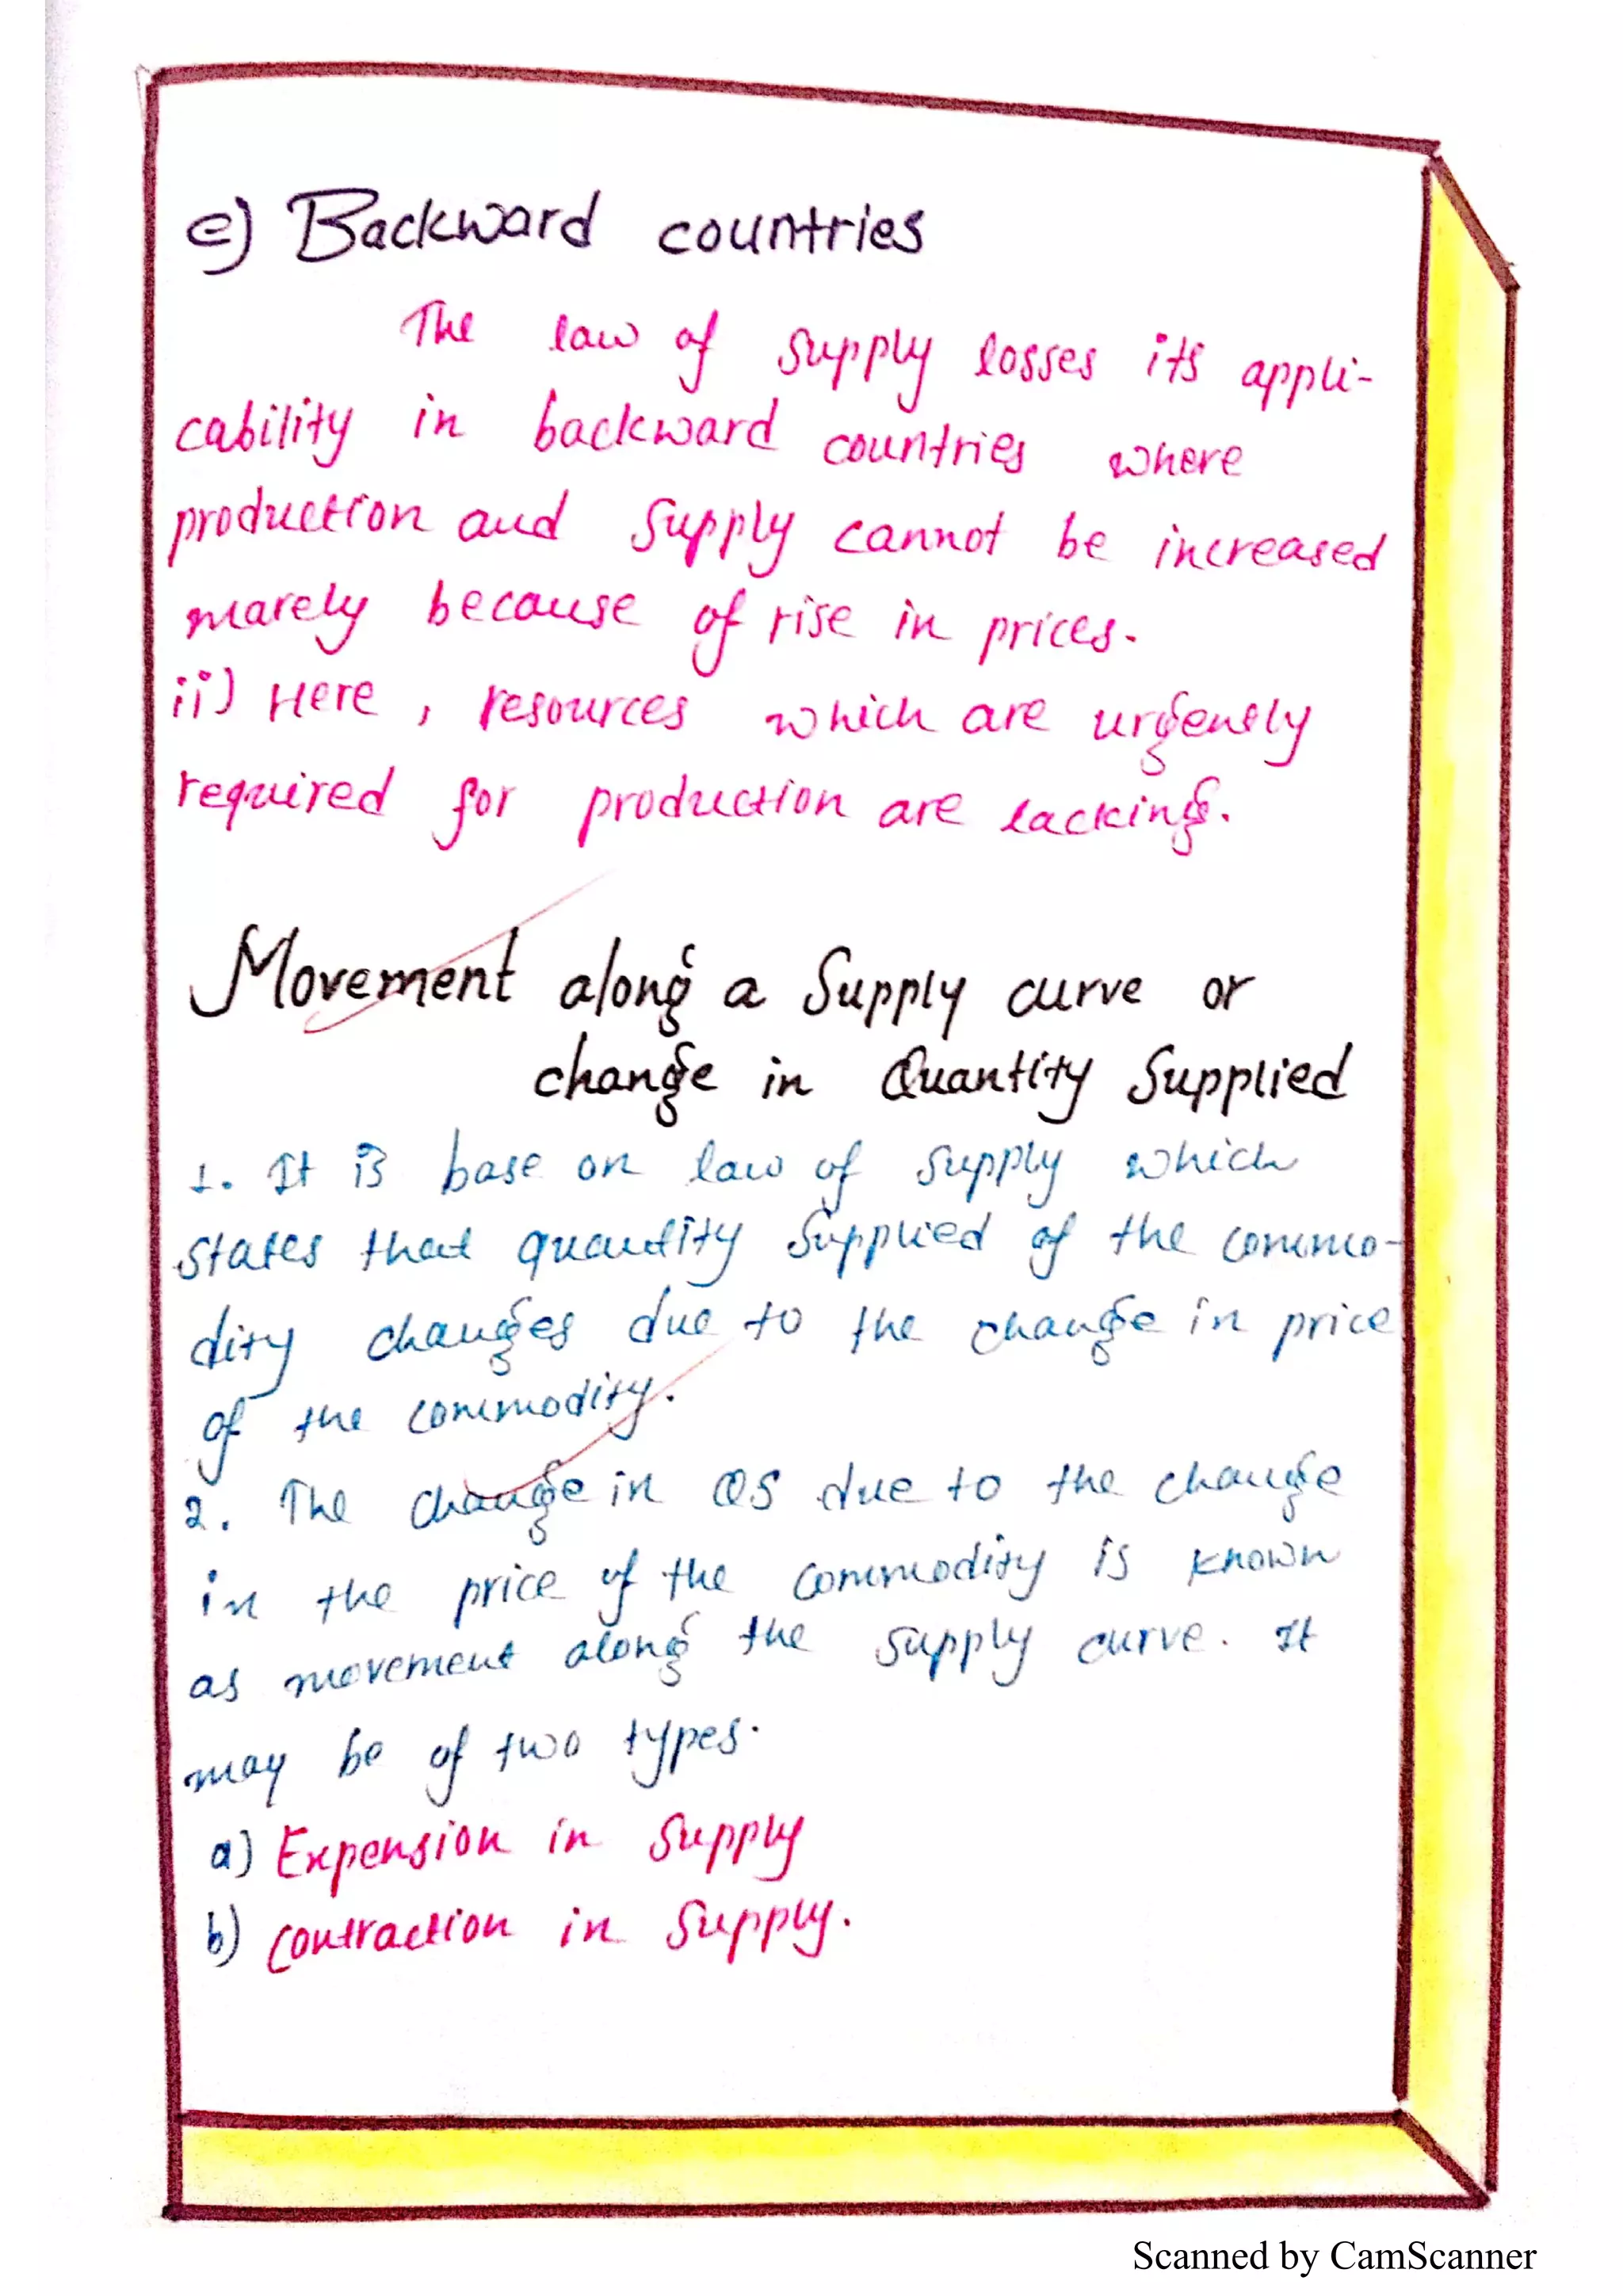 e) Backward countries
The law of supply losses its appli-
cability in backward countries where
production and supply cannot be increased
marely because of rise in prices.
ii) Here, resources which are urgently
required for production are lacking.
Movement along a Supply curve or
change in Quantity Supplied
1. It is base on law of supply which
states that quantity supplied of the commo-
dity changes due to the change in price
of the commodity.
2. The change in QS due to the change
in the price of the commodity is known
as movement along the supply curve. It
may be of two types.
a) Expension in supply
b) contraction in supply.
Scanned by CamScanner